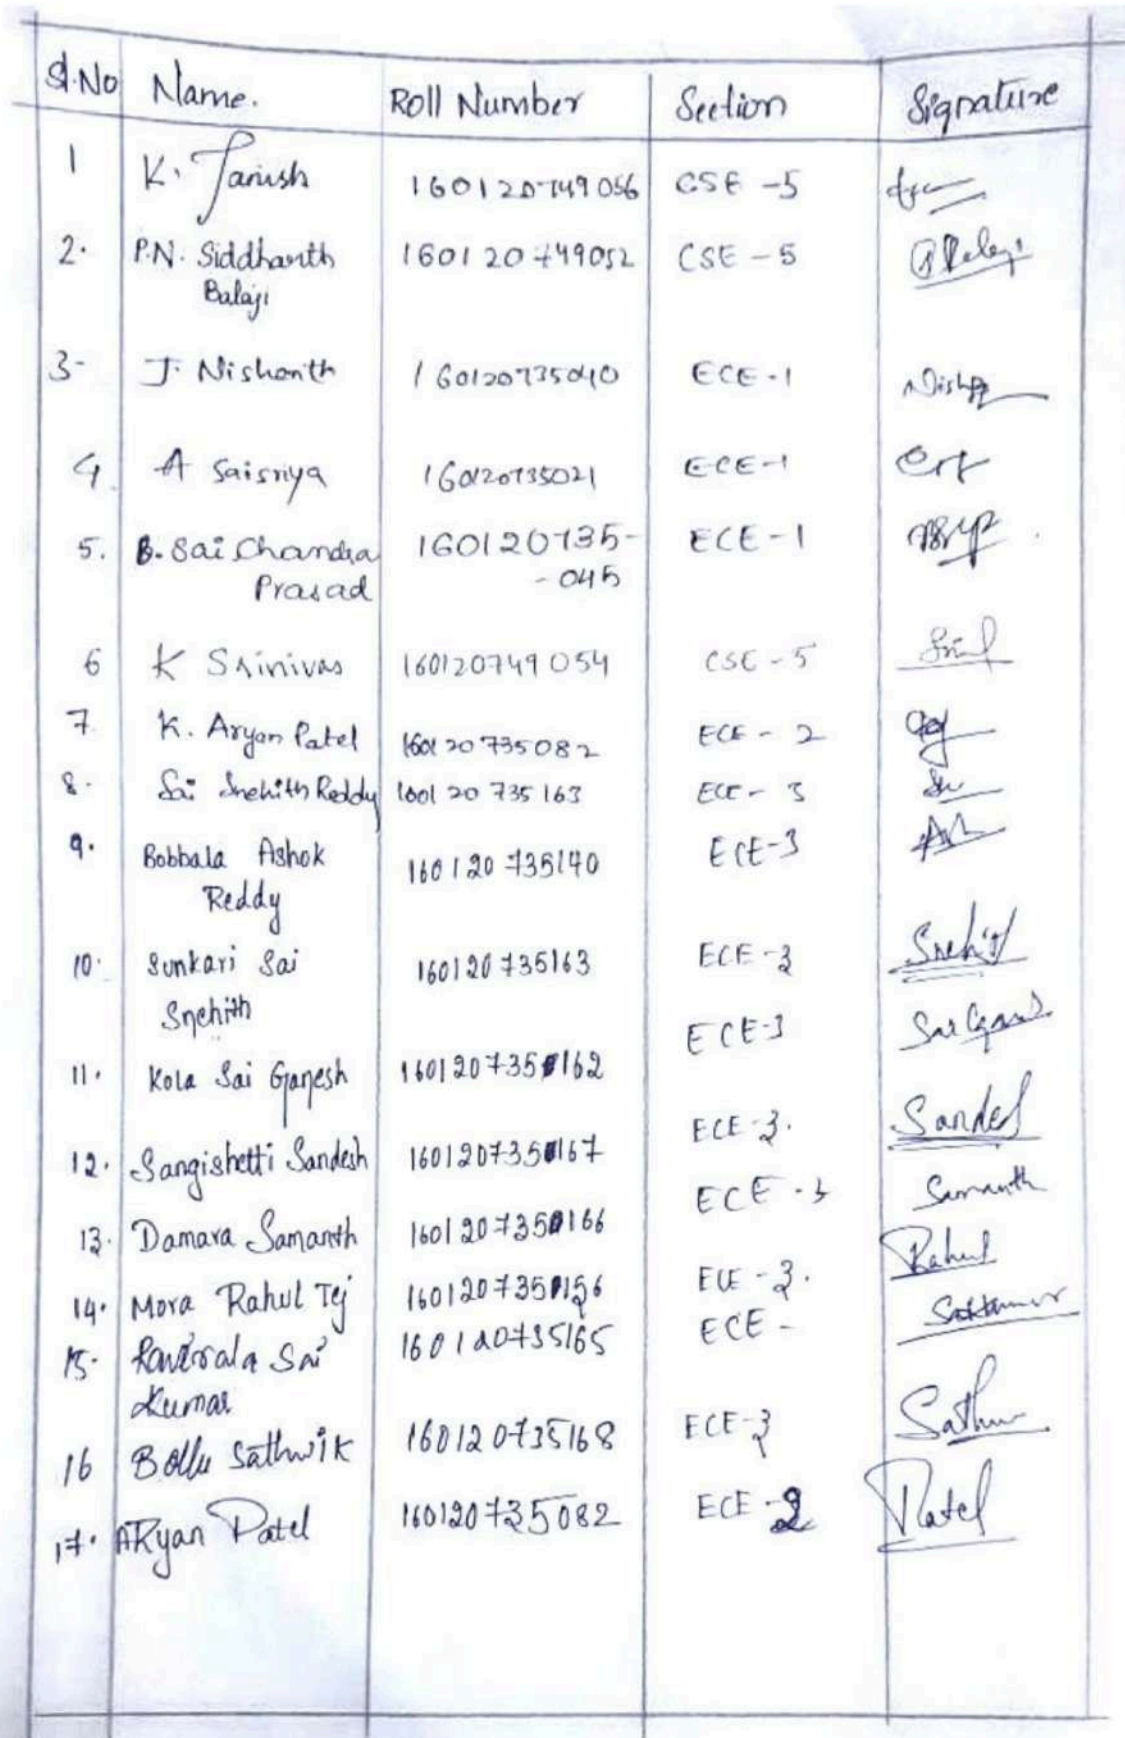 Sl.No Name. Roll Number Section Signature
1 K. Tanush 160120749056 CSE -5
2. P.N. Siddhanth 160120749052 CSE - 5
Balaji
3- J. Nishanth 160120735040 ECE-1
4. A Saisriya 160120735021 ECE-1
5. B. Sai Chandra 160120735- ECE - 1
Prasad - 045
6 K Srinivas 160120749054 CSE - 5
7. K. Aryan Patel 160120735082 ECE - 2
8. Sai Snehith Reddy 160120735163 ECE - 3
9. Bobbala Ashok 160120735140 ECE-3
Reddy
10. Sunkari Sai 160120735163 ECE -3 Snehith
Snehith
11. Kola Sai Ganesh 160120735162 ECE-3
12. Sangishetti Sandesh 160120735167 ECE-3. Sandesh
13. Damara Samanth 160120735166 ECE - 3 Samanth
14. Mora Rahul Tej 160120735156 ECE -3. Rahul
15. Sai 160120735165 ECE - Saikumar
Kumar
16 Bollu Sathwik 160120735168 ECE-3
17. ARyan Patel 160120735082 ECE -2 Patel